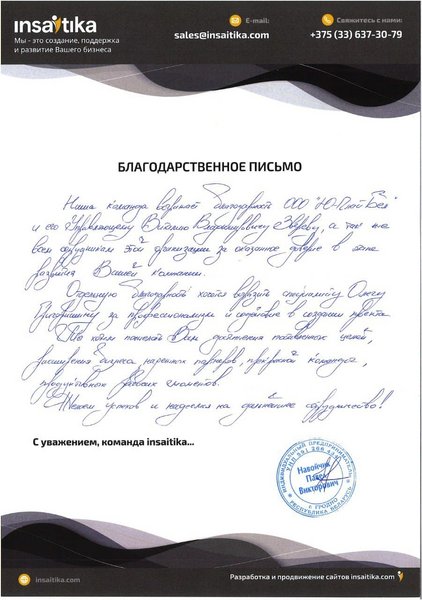 insaitika
Мы - это создание, поддержка
и развитие Вашего бизнеса
E-mail:
sales@insaitika.com
Свяжитесь с нами:
+375 (33) 637-30-79
БЛАГОДАРСТВЕННОЕ ПИСЬМО
Наша команда выражает благодарность ООО
и его Управляющему Виталию Владимировичу Зверову, а так же
всем сотрудникам этой организации за оказанное доверие в
развития Вашей компании.
Отдельную благодарность хотим выразить специалисту Олегу
за профессионализм и содействие в создании проекта.
Мы хотим пожелать Вам достижения поставленных целей,
расширения бизнеса, надежных партнеров, прекрасной команды,
рабочих моментов.
Желаем успехов и надеемся на дальнейшее сотрудничество!
С уважением, команда insaitika...
ИНДИВИДУАЛЬНЫЙ ПРЕДПРИНИМАТЕЛЬ
Навойчик
Павел
Викторович
Г. ГРОДНО
РЕСПУБЛИКА БЕЛАРУСЬ
insaitika.com
Разработка и продвижение сайтов insaitika.com